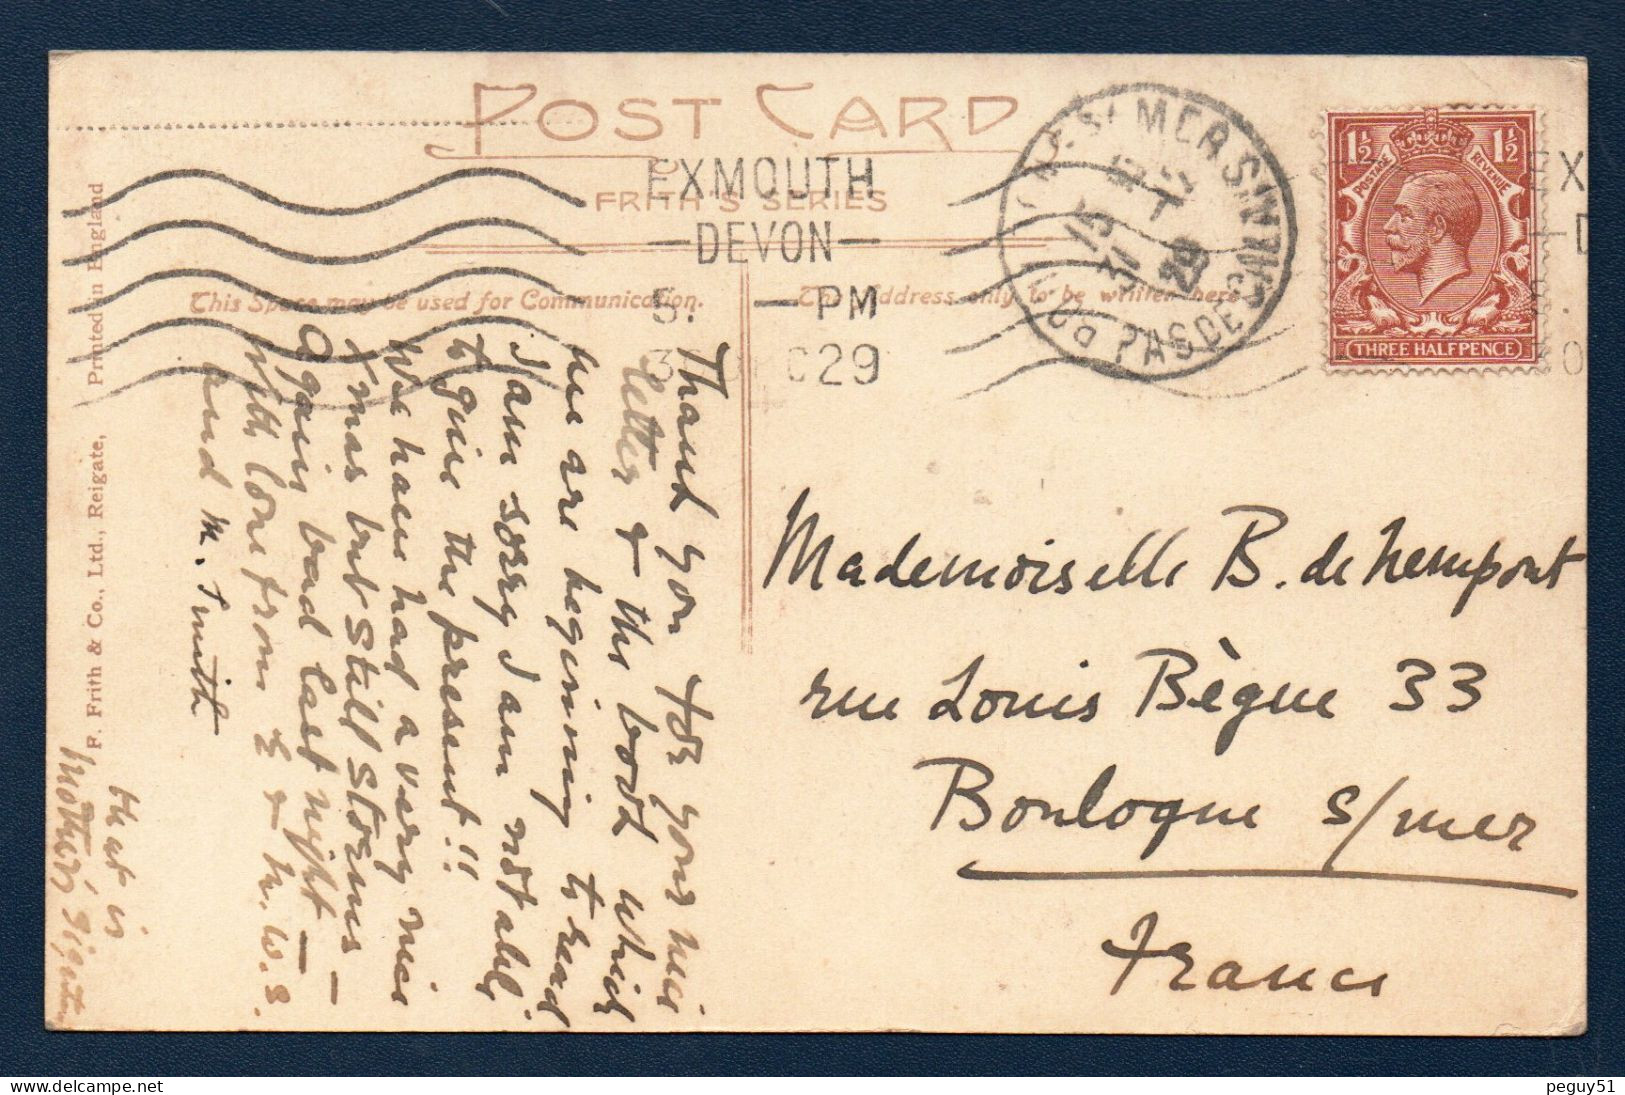 POST CARD
FRITH'S SERIES
EXMOUTH
DEVON
5. — PM
DEC 29
BOULOGNE S/MER
PAS DE CALAIS
15
31
29
POSTAGE REVENUE
1½ 1½
THREE HALFPENCE
EX
This Space may be used for Communication.
The Address only to be written here
Thank you for your nice
letter & the book which
we are beginning to read
I am sorry I am not able
to give the present!!
We have had a very nice
Xmas but still storms –
Again bad last night –
with love from & M. W. S.
and M. Smith
that is
Mother's
Mademoiselle B. de Nempont
rue Louis Bègue 33
Boulogne s/mer
France
F. Frith & Co., Ltd., Reigate, Printed in England
peguy51